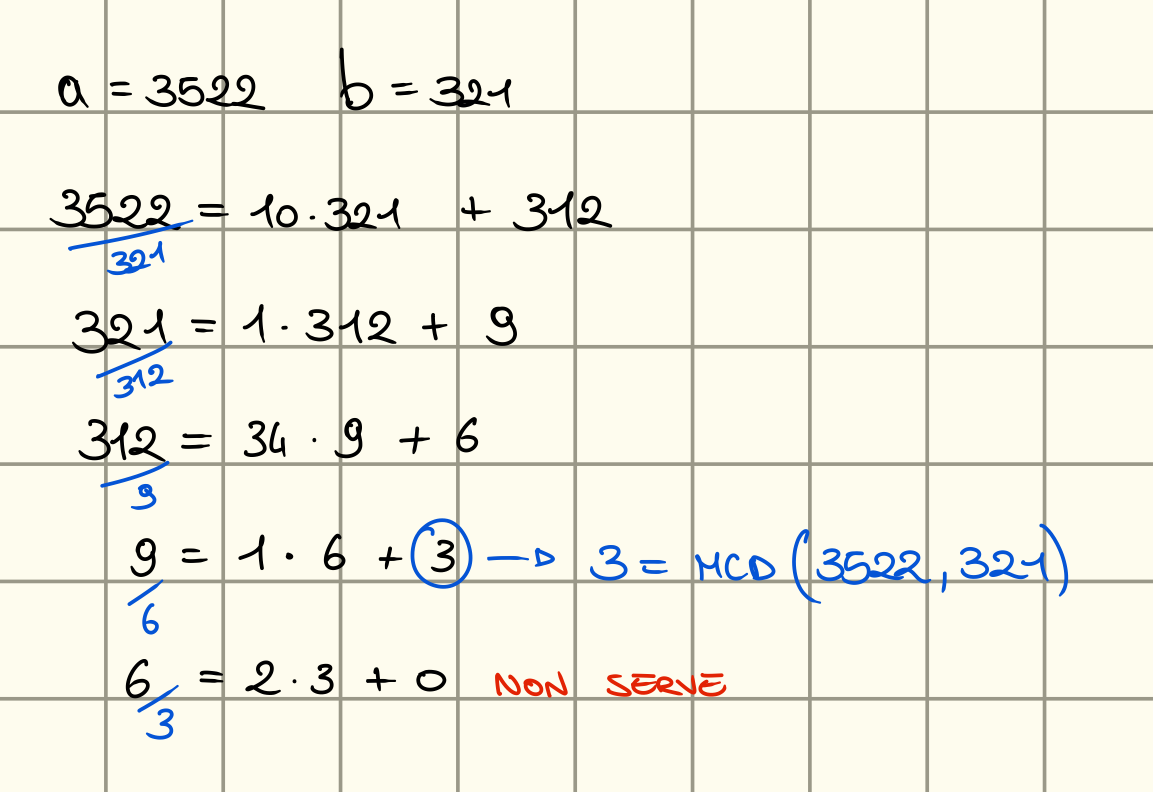 a = 3522 b = 321
3522 = 10 · 321 + 312
321
321 = 1 · 312 + 9
312
312 = 34 · 9 + 6
9
9 = 1 · 6 + 3 → 3 = MCD (3522, 321)
6
6 = 2 · 3 + 0 NON SERVE
3